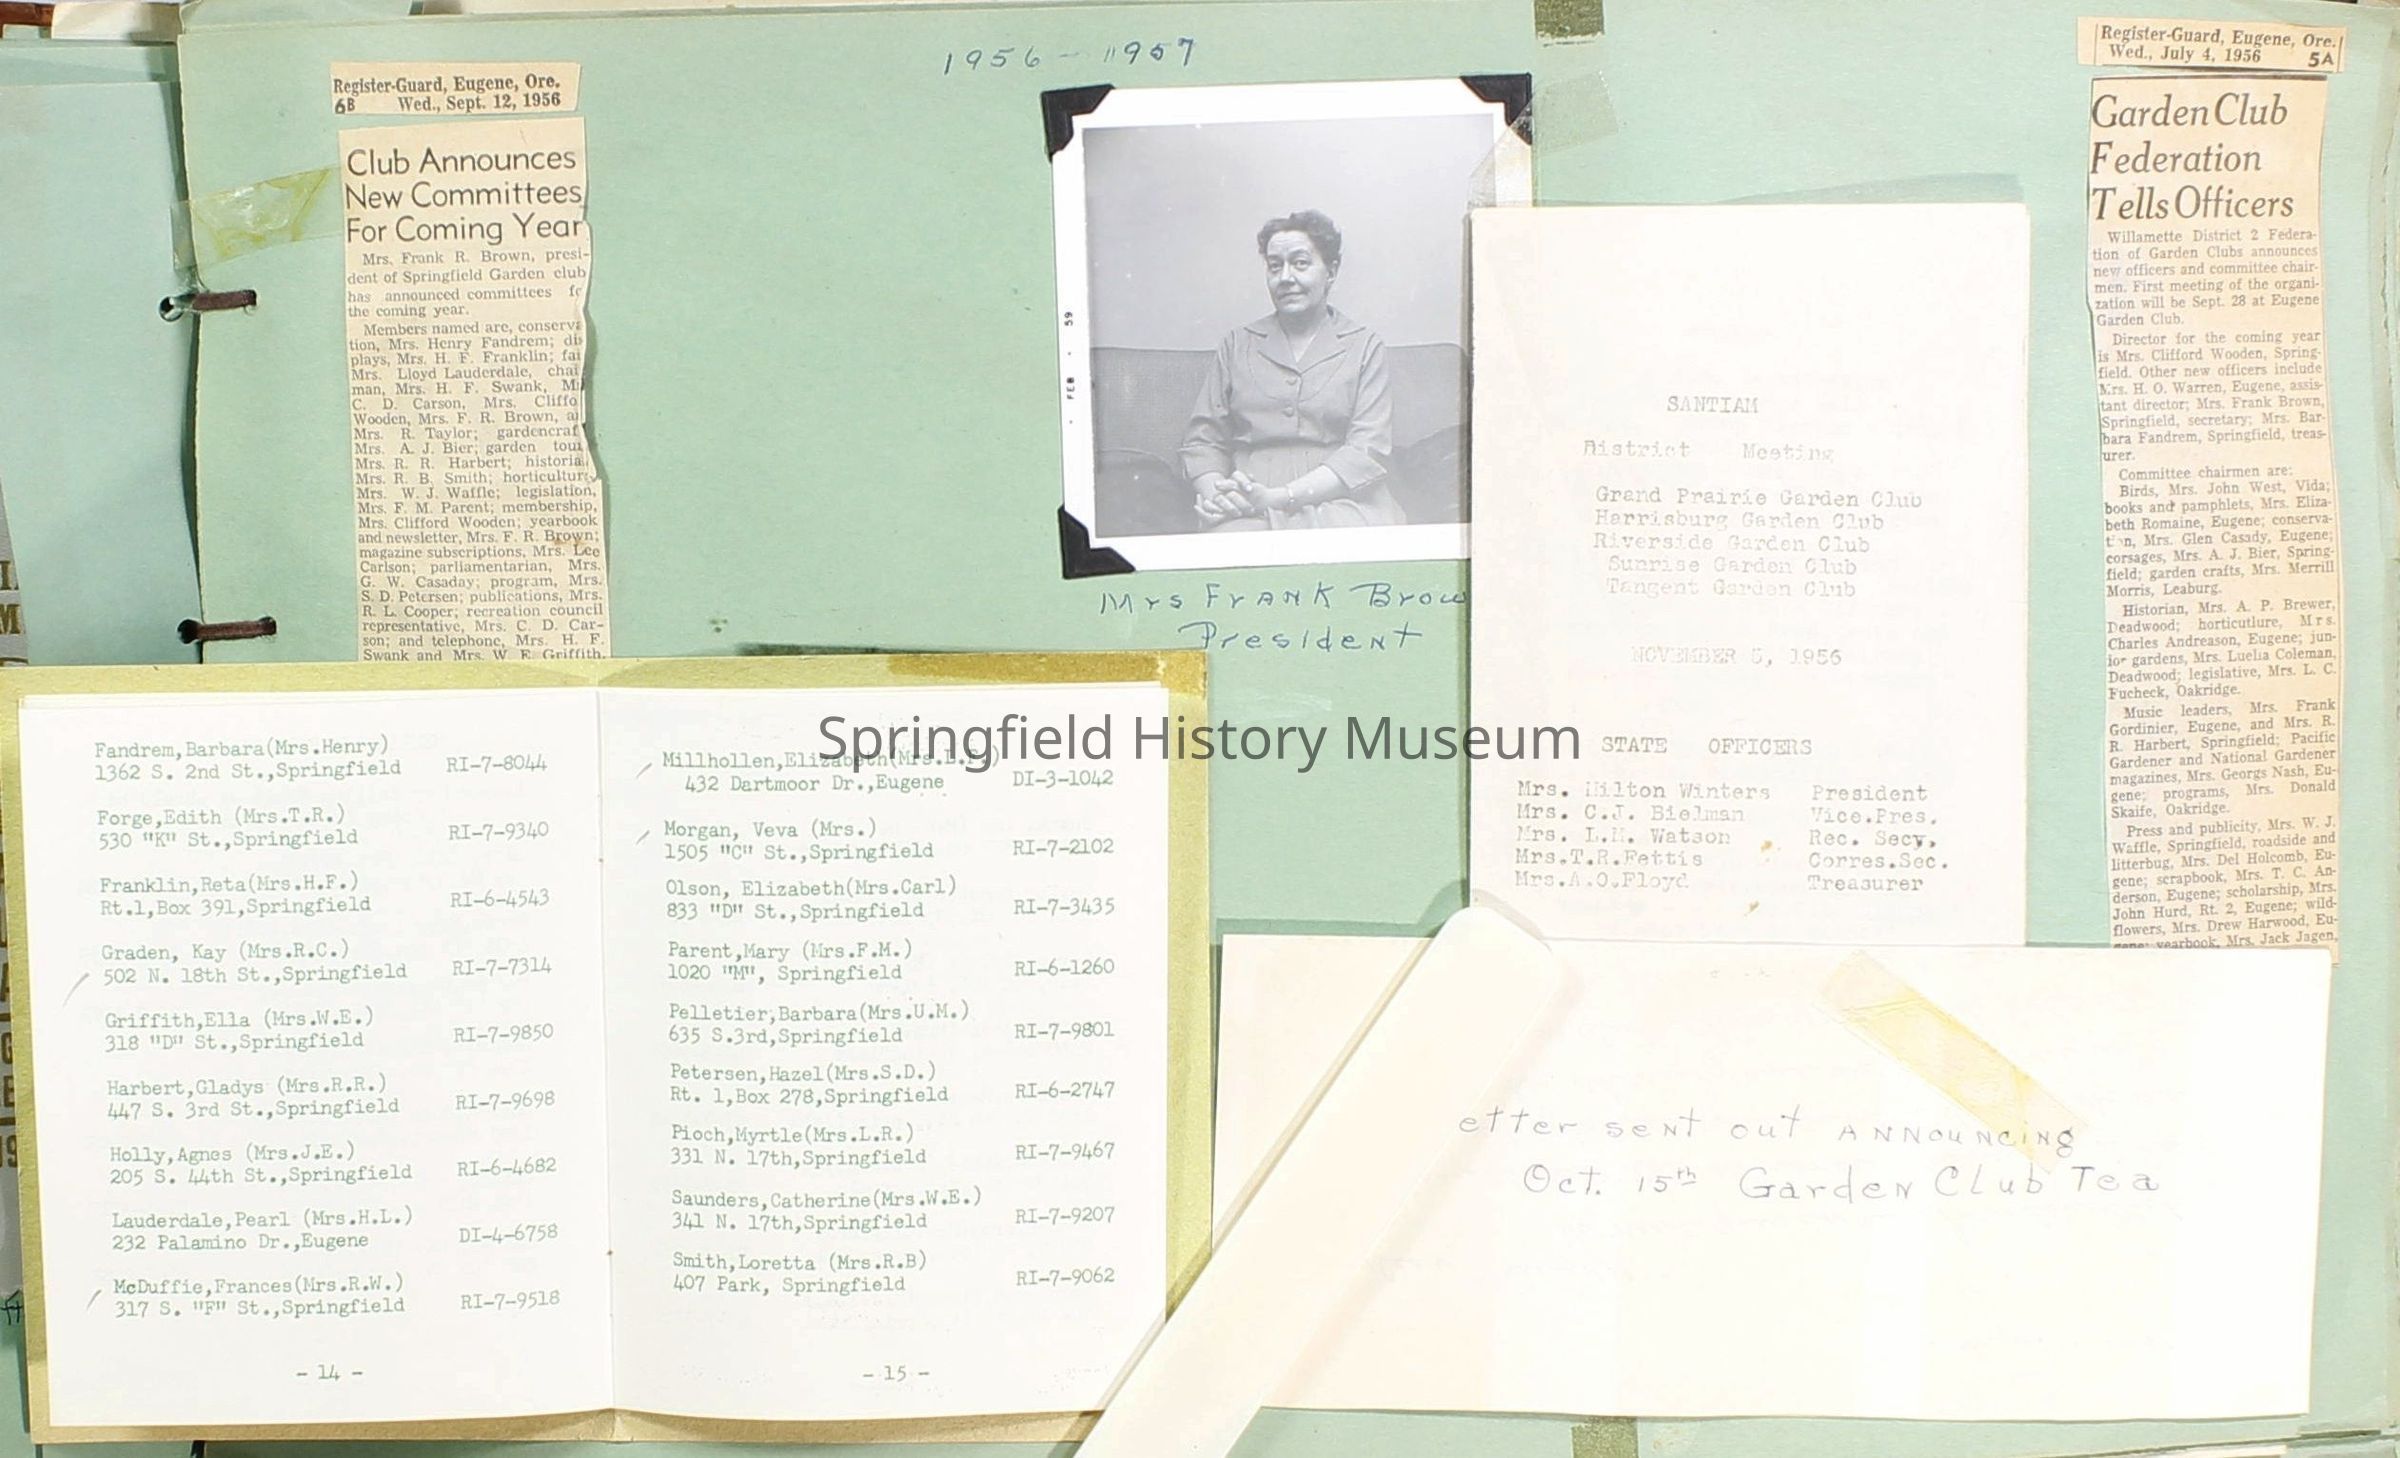 1956 - 1957
Register-Guard, Eugene, Ore.
6B Wed., Sept. 12, 1956
Club Announces
New Committees
For Coming Year
Mrs. Frank R. Brown, presi-
dent of Springfield Garden club
has announced committees
the coming year.
Members named are, conserva
tion, Mrs. Henry Fandrem; dis
plays, Mrs. H. F. Franklin; fai
Mrs. Lloyd Lauderdale, chai
man, Mrs. H. F. Swank, M
C. D. Carson, Mrs. Cliffo
Wooden, Mrs. F. R. Brown, a
Mrs. R. Taylor; gardencraf
Mrs. A. J. Bier; garden tou
Mrs. R. R. Harbert; historia
Mrs. R. B. Smith; horticultur
Mrs. W. J. Waffle; legislation,
Mrs. F. M. Parent; membership,
Mrs. Clifford Wooden; yearbook
and newsletter, Mrs. F. R. Brown;
magazine subscriptions, Mrs. Lee
Carlson; parliamentarian, Mrs.
G. W. Casaday; program, Mrs.
S. D. Petersen; publications, Mrs.
R. L. Cooper; recreation council
representative, Mrs. C. D. Car-
son; and telephone, Mrs. H. F.
Swank and Mrs. W. E. Griffith.
FEB · 59
Mrs Frank Brow
President
SANTIAM
District Meeting
Grand Prairie Garden Club
Harrisburg Garden Club
Riverside Garden Club
Sunrise Garden Club
Tangent Garden Club
NOVEMBER 5, 1956
STATE OFFICERS
Mrs. Milton Winters President
Mrs. C.J. Bielman Vice.Pres.
Mrs. L.M. Watson Rec. Secy.
Mrs.T.R.Fettis Corres.Sec.
Mrs.A.O.Floyd Treasurer
Register-Guard, Eugene, Ore.
Wed., July 4, 1956 5A
Garden Club
Federation
Tells Officers
Willamette District 2 Federa-
tion of Garden Clubs announces
new officers and committee chair-
men. First meeting of the organi-
zation will be Sept. 28 at Eugene
Garden Club.
Director for the coming year
is Mrs. Clifford Wooden, Spring-
field. Other new officers include
Mrs. H. O. Warren, Eugene, assis-
tant director; Mrs. Frank Brown,
Springfield, secretary; Mrs. Bar-
bara Fandrem, Springfield, treas-
urer.
Committee chairmen are:
Birds, Mrs. John West, Vida;
books and pamphlets, Mrs. Eliza-
beth Romaine, Eugene; conserva-
tion, Mrs. Glen Casady, Eugene;
corsages, Mrs. A. J. Bier, Spring-
field; garden crafts, Mrs. Merrill
Morris, Leaburg.
Historian, Mrs. A. P. Brewer,
Deadwood; horticutlure, Mrs.
Charles Andreason, Eugene; jun-
ior gardens, Mrs. Luella Coleman,
Deadwood; legislative, Mrs. L. C.
Fucheck, Oakridge.
Music leaders, Mrs. Frank
Gordinier, Eugene, and Mrs. R.
R. Harbert, Springfield; Pacific
Gardener and National Gardener
magazines, Mrs. Georgs Nash, Eu-
gene; programs, Mrs. Donald
Skaife, Oakridge.
Press and publicity, Mrs. W. J.
Waffle, Springfield, roadside and
litterbug, Mrs. Del Holcomb, Eu-
gene; scrapbook, Mrs. T. C. An-
derson, Eugene; scholarship, Mrs.
John Hurd, Rt. 2, Eugene; wild-
flowers, Mrs. Drew Harwood, Eu-
gene; yearbook, Mrs. Jack Jagen,
Springfield History Museum
Fandrem,Barbara(Mrs.Henry)
1362 S. 2nd St.,Springfield RI-7-8044
Forge,Edith (Mrs.T.R.)
530 "K" St.,Springfield RI-7-9340
Franklin,Reta(Mrs.H.F.)
Rt.1,Box 391,Springfield RI-6-4543
Graden, Kay (Mrs.R.C.)
502 N. 18th St.,Springfield RI-7-7314
Griffith,Ella (Mrs.W.E.)
318 "D" St.,Springfield RI-7-9850
Harbert,Gladys (Mrs.R.R.)
447 S. 3rd St.,Springfield RI-7-9698
Holly,Agnes (Mrs.J.E.)
205 S. 44th St.,Springfield RI-6-4682
Lauderdale,Pearl (Mrs.H.L.)
232 Palamino Dr.,Eugene DI-4-6758
McDuffie,Frances(Mrs.R.W.)
317 S. "F" St.,Springfield RI-7-9518
- 14 -
Millhollen,Elizabeth(Mrs.L.F.)
432 Dartmoor Dr.,Eugene DI-3-1042
Morgan, Veva (Mrs.)
1505 "C" St.,Springfield RI-7-2102
Olson, Elizabeth(Mrs.Carl)
833 "D" St.,Springfield RI-7-3435
Parent,Mary (Mrs.F.M.)
1020 "M", Springfield RI-6-1260
Pelletier,Barbara(Mrs.U.M.)
635 S.3rd,Springfield RI-7-9801
Petersen,Hazel(Mrs.S.D.)
Rt. 1,Box 278,Springfield RI-6-2747
Pioch,Myrtle(Mrs.L.R.)
331 N. 17th,Springfield RI-7-9467
Saunders,Catherine(Mrs.W.E.)
341 N. 17th,Springfield RI-7-9207
Smith,Loretta (Mrs.R.B)
407 Park, Springfield RI-7-9062
- 15 -
etter sent out Announcing
Oct. 15th Garden Club Tea